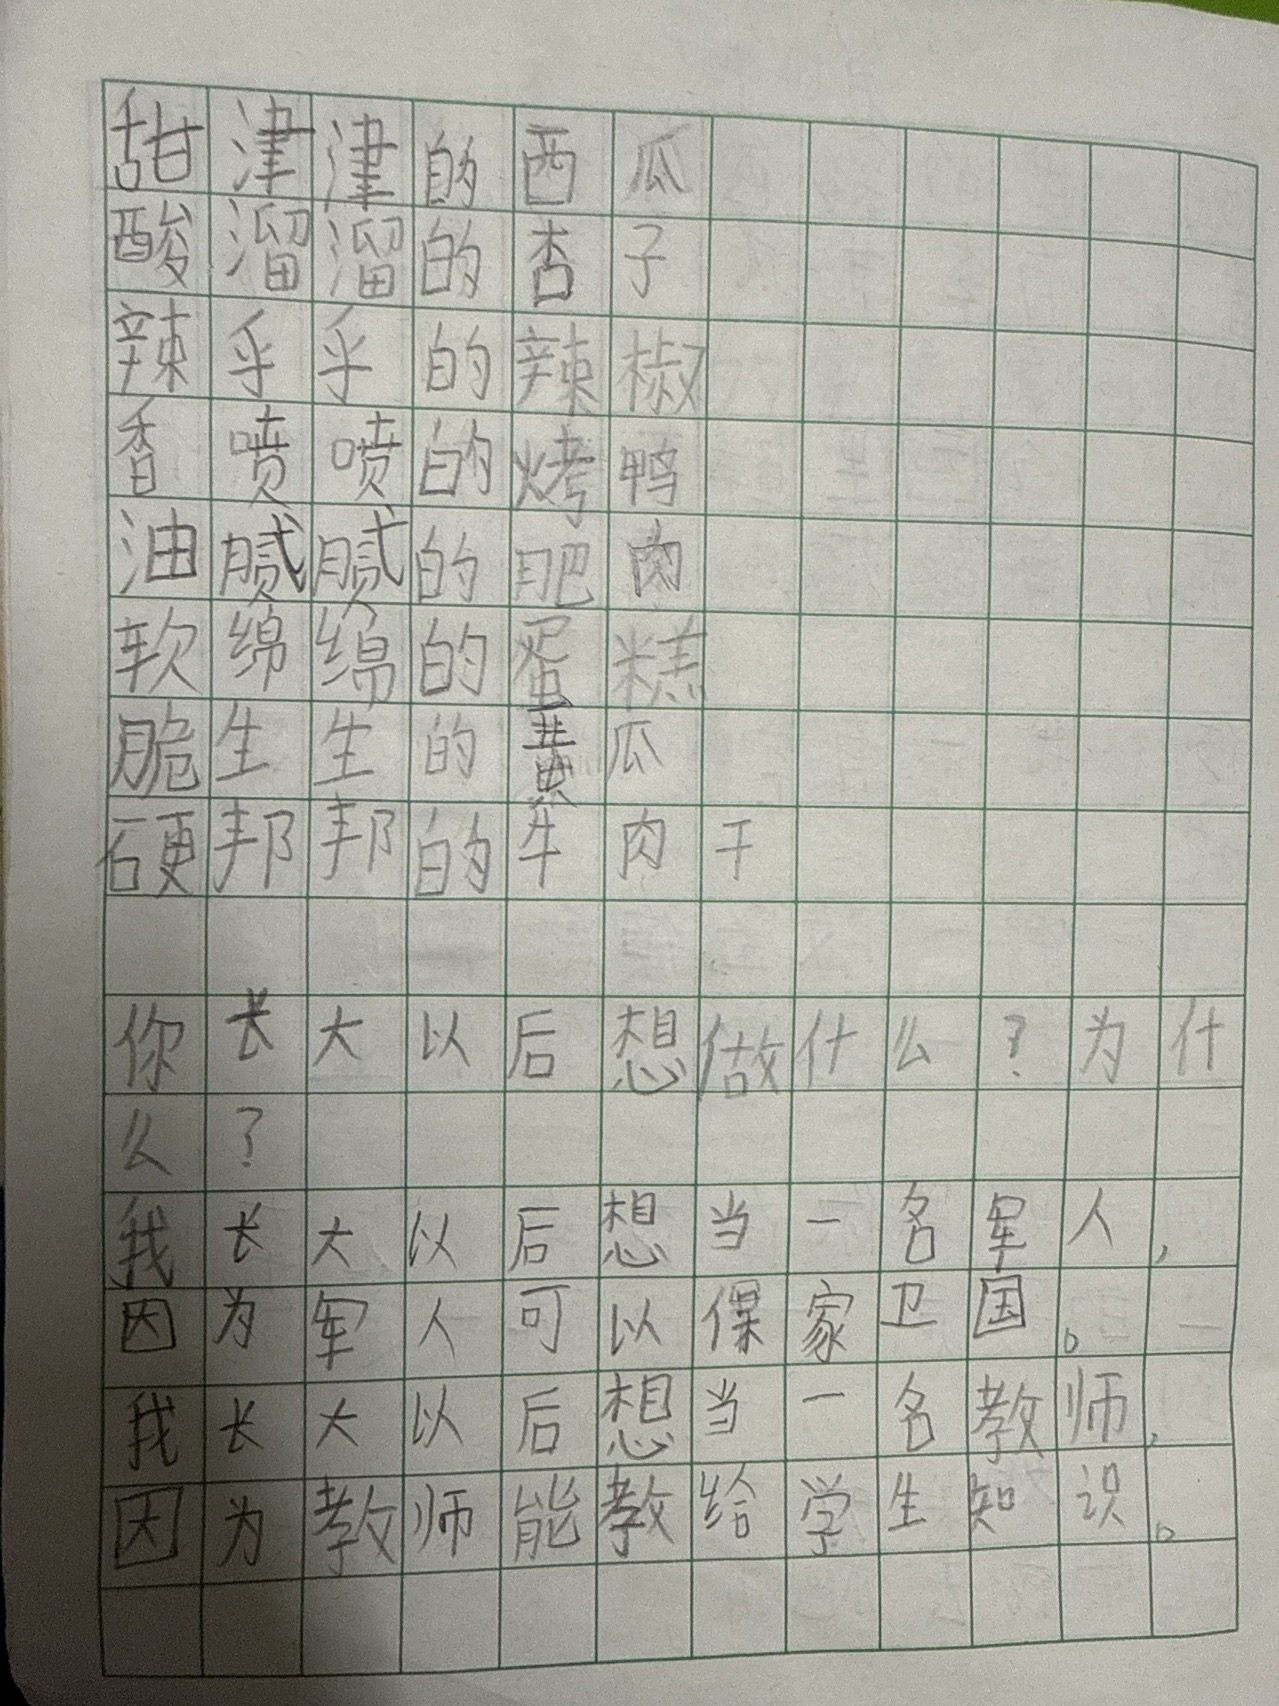 甜津津的西瓜
酸溜溜的杏子
辣乎乎的辣椒
香喷喷的烤鸭
油腻腻的肥肉
软绵绵的蛋糕
脆生生的黄瓜
硬邦邦的牛肉干
你长大以后想做什么?为什
么?
我长大以后想当一名军人,
因为军人可以保家卫国。
我长大以后想当一名教师,
因为教师能教给学生知识。